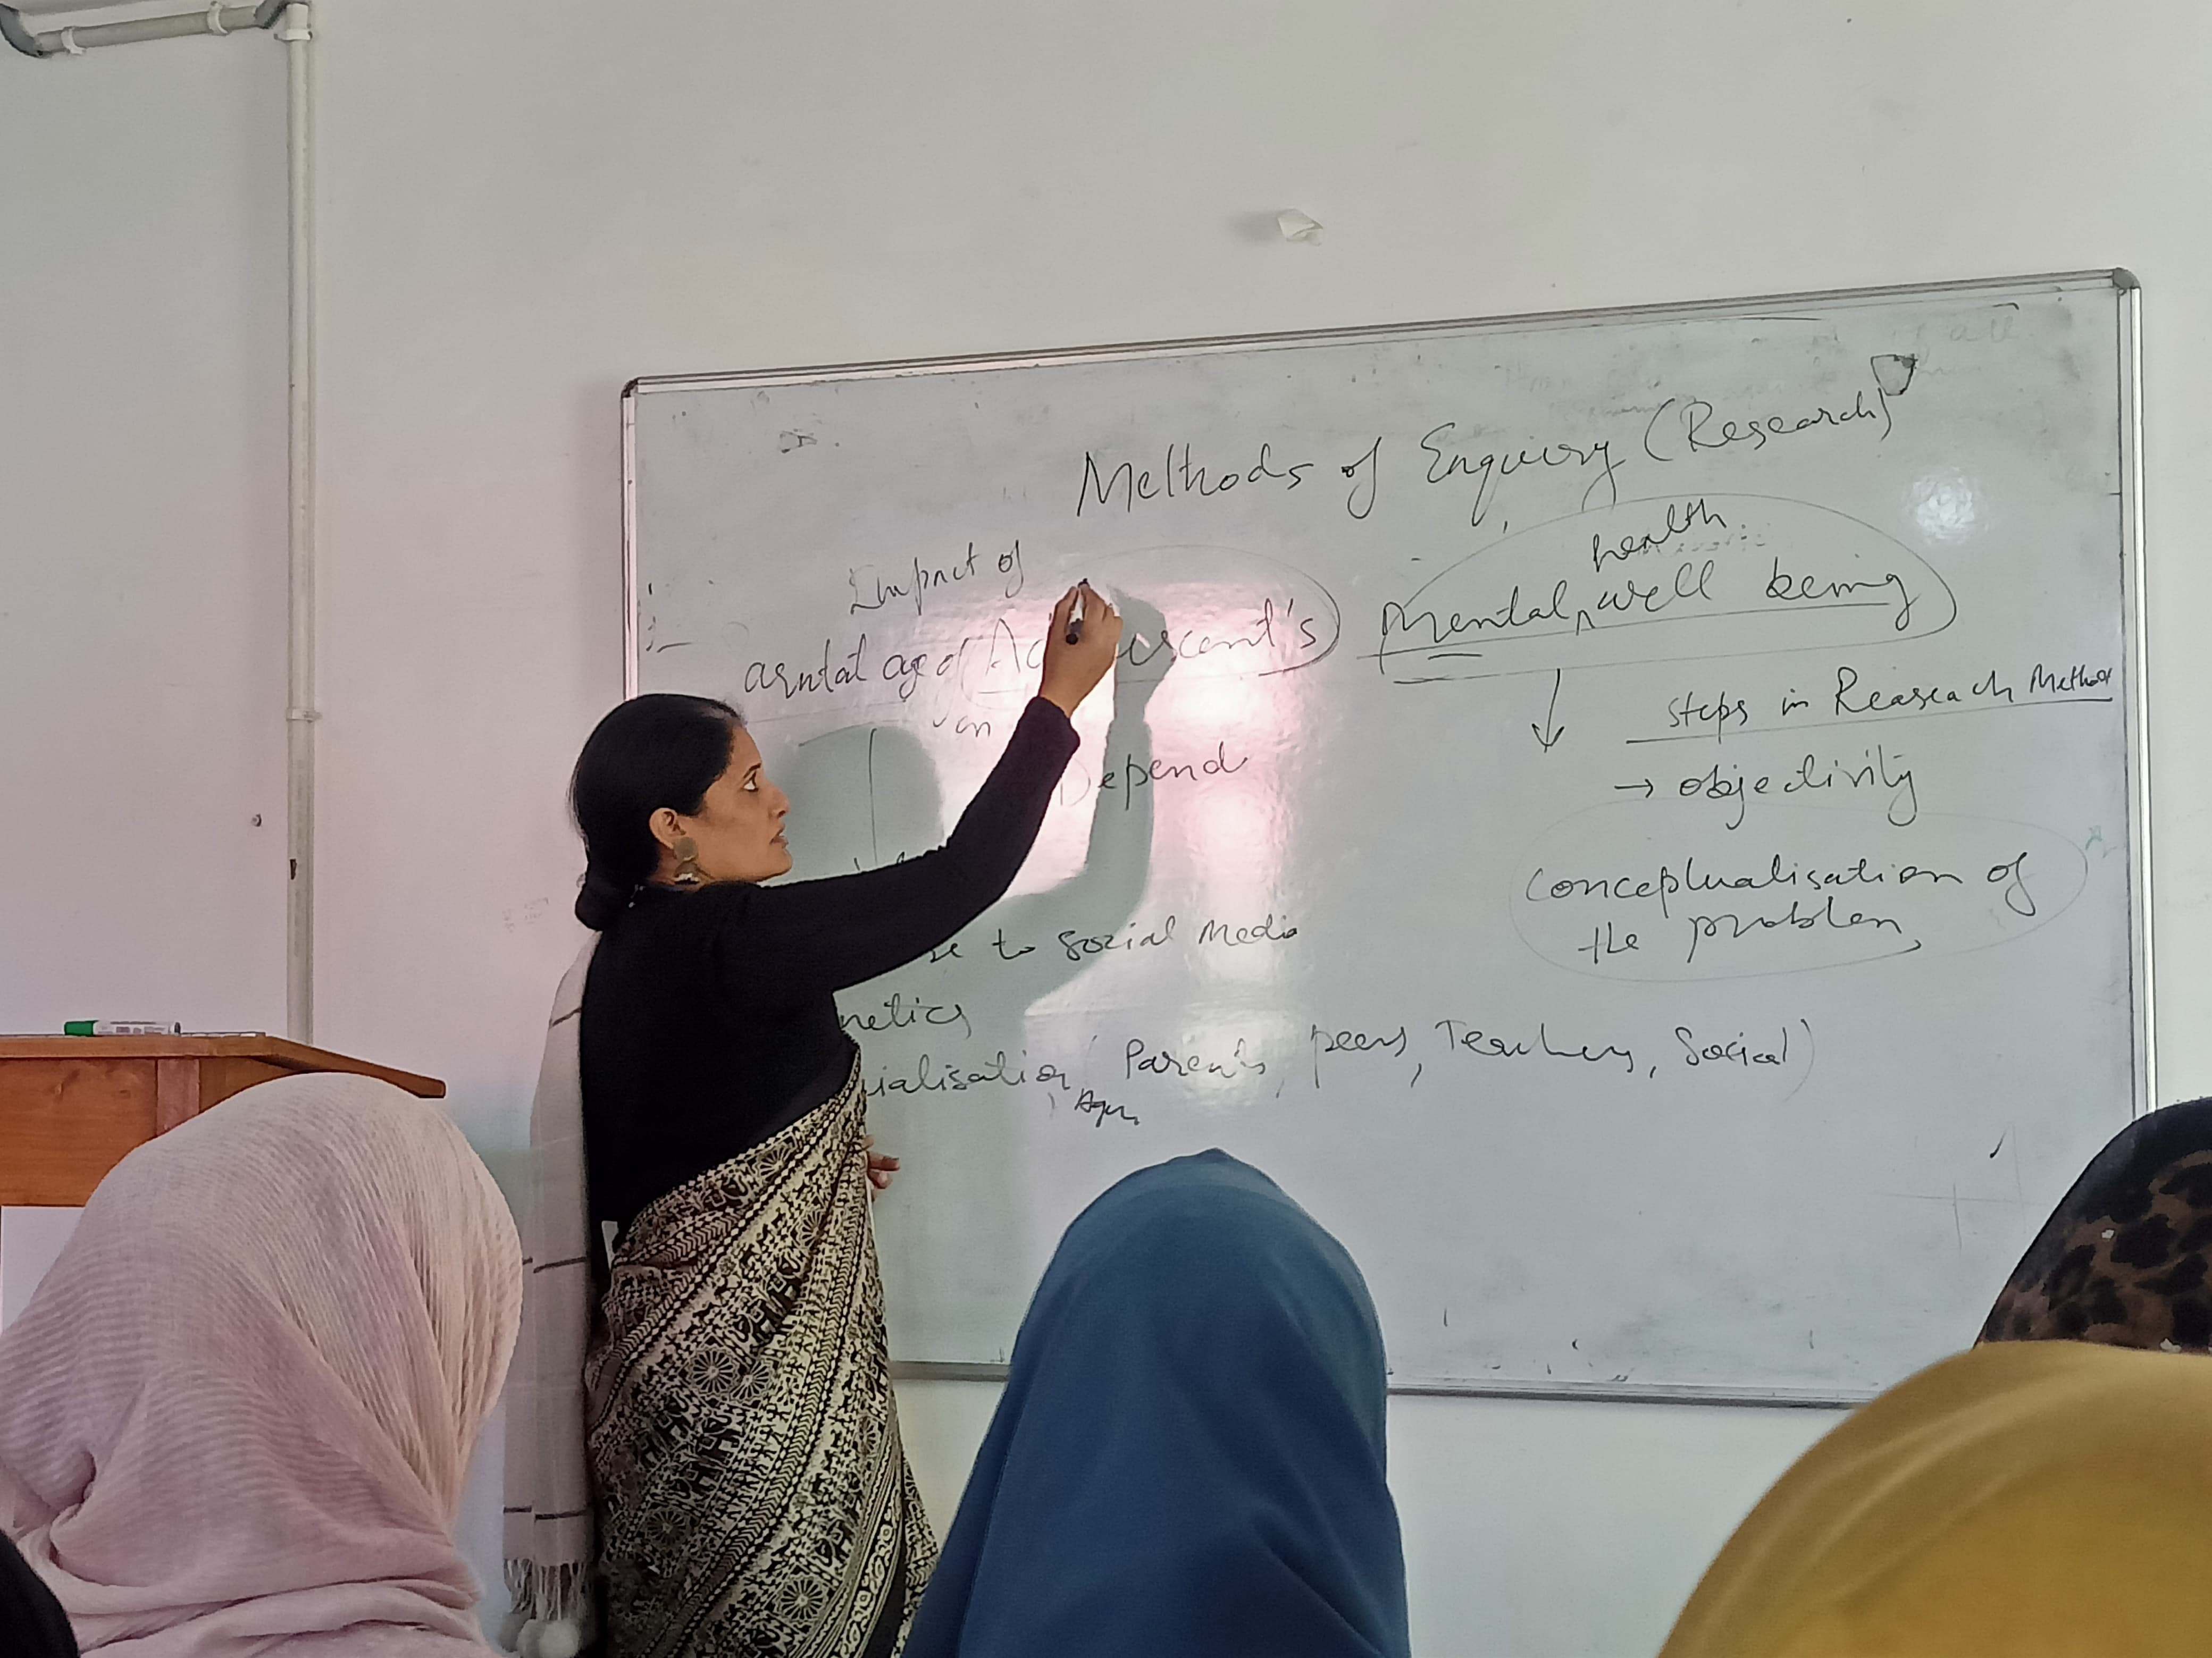 Methods of Enquiry (Research)
Impact of
health
age of Ad escent's) Mental ^ well being
on
steps in Reaseach Method
Depend
→ objectivity
conceptualisation of
the problem
se to Social Media
netics
ialisation (Parents, peers, Teachers, Social)